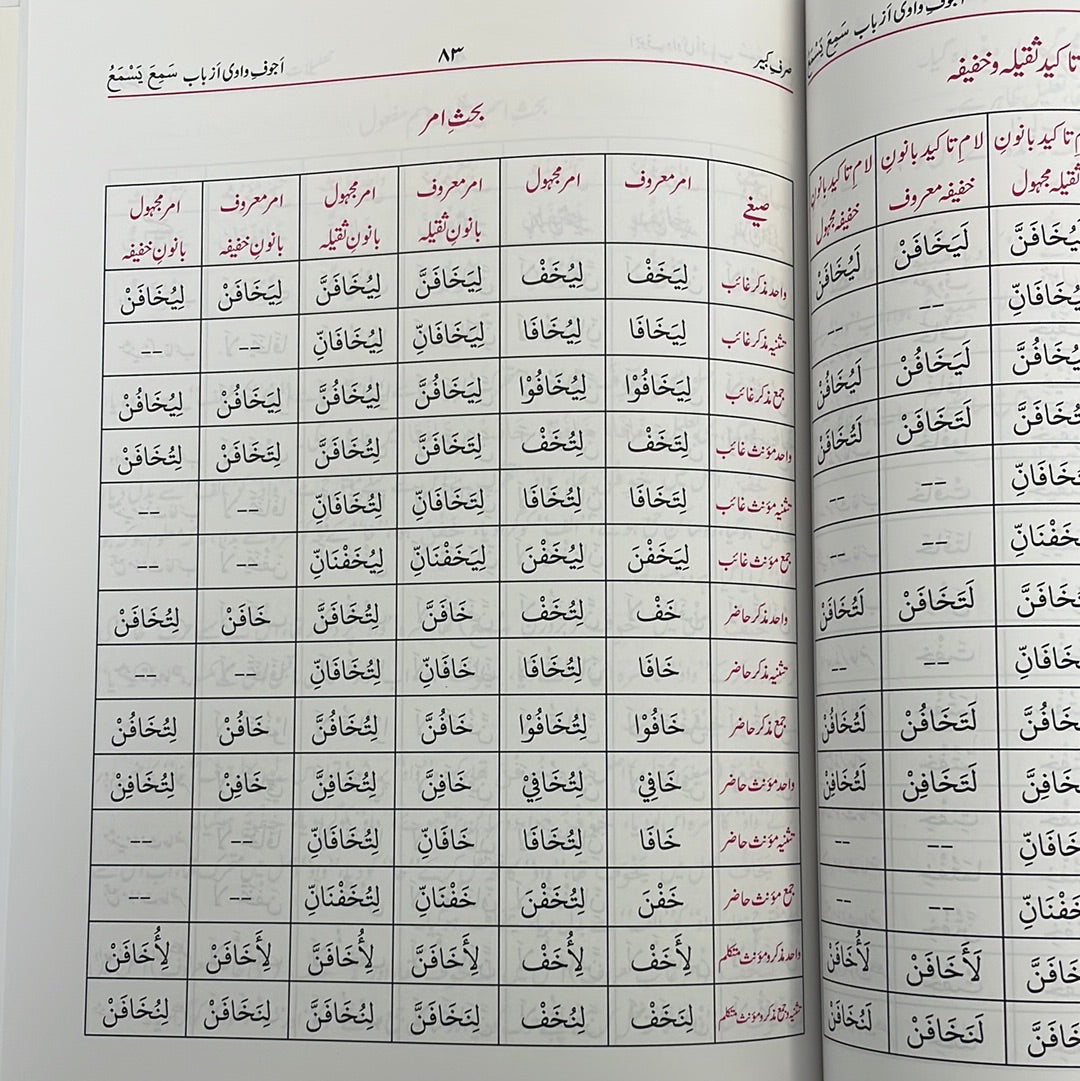 صرفِ کبیر ۸۳ اَجوفِ واوی اَز باب سَمِعَ يَسْمَعُ
بحثِ امر
صیغے امر معروف امر مجہول امر معروف بانونِ ثقیلہ امر مجہول بانونِ ثقیلہ امر معروف بانونِ خفیفہ امر مجہول بانونِ خفیفہ
واحد مذکر غائب لِيَخَفْ لِيُخَفْ لِيَخَافَنَّ لِيُخَافَنَّ لِيَخَافَنْ لِيُخَافَنْ
تثنیہ مذکر غائب لِيَخَافَا لِيُخَافَا لِيَخَافَانِّ لِيُخَافَانِّ -- --
جمع مذکر غائب لِيَخَافُوْا لِيُخَافُوْا لِيَخَافُنَّ لِيُخَافُنَّ لِيَخَافُنْ لِيُخَافُنْ
واحد مؤنث غائب لِتَخَفْ لِتُخَفْ لِتَخَافَنَّ لِتُخَافَنَّ لِتَخَافَنْ لِتُخَافَنْ
تثنیہ مؤنث غائب لِتَخَافَا لِتُخَافَا لِتَخَافَانِّ لِتُخَافَانِّ -- --
جمع مؤنث غائب لِيَخَفْنَ لِيُخَفْنَ لِيَخَفْنَانِّ لِيُخَفْنَانِّ -- --
واحد مذکر حاضر خَفْ لِتُخَفْ خَافَنَّ لِتُخَافَنَّ خَافَنْ لِتُخَافَنْ
تثنیہ مذکر حاضر خَافَا لِتُخَافَا خَافَانِّ لِتُخَافَانِّ -- --
جمع مذکر حاضر خَافُوْا لِتُخَافُوْا خَافُنَّ لِتُخَافُنَّ خَافُنْ لِتُخَافُنْ
واحد مؤنث حاضر خَافِيْ لِتُخَافِيْ خَافِنَّ لِتُخَافِنَّ خَافِنْ لِتُخَافِنْ
تثنیہ مؤنث حاضر خَافَا لِتُخَافَا خَافَانِّ لِتُخَافَانِّ -- --
جمع مؤنث حاضر خَفْنَ لِتُخَفْنَ خَفْنَانِّ لِتُخَفْنَانِّ -- --
واحد مذکر و مؤنث متکلم لِأَخَفْ لِأُخَفْ لِأَخَافَنَّ لِأُخَافَنَّ لِأَخَافَنْ لِأُخَافَنْ
تثنیہ و جمع مذکر و مؤنث متکلم لِنَخَفْ لِنُخَفْ لِنَخَافَنَّ لِنُخَافَنَّ لِنَخَافَنْ لِنُخَافَنْ
اَجوفِ واوی اَز باب سَمِعَ يَسْمَعُ
تاکید ثقیلہ و خفیفہ
تاکید بانونِ ثقیلہ مجہول لامِ تاکید بانونِ خفیفہ معروف لامِ تاکید بانونِ خفیفہ مجہول
لَيَخَافَنْ لَيُخَافَنْ
-- --
لَيَخَافُنْ لَيُخَافُنْ
لَتَخَافَنْ لَتُخَافَنْ
-- --
-- --
لَتَخَافَنْ لَتُخَافَنْ
-- --
لَتَخَافُنْ لَتُخَافُنْ
لَتَخَافِنْ لَتُخَافِنْ
-- --
-- --
لَأَخَافَنْ لَأُخَافَنْ
لَنَخَافَنْ لَنُخَافَنْ